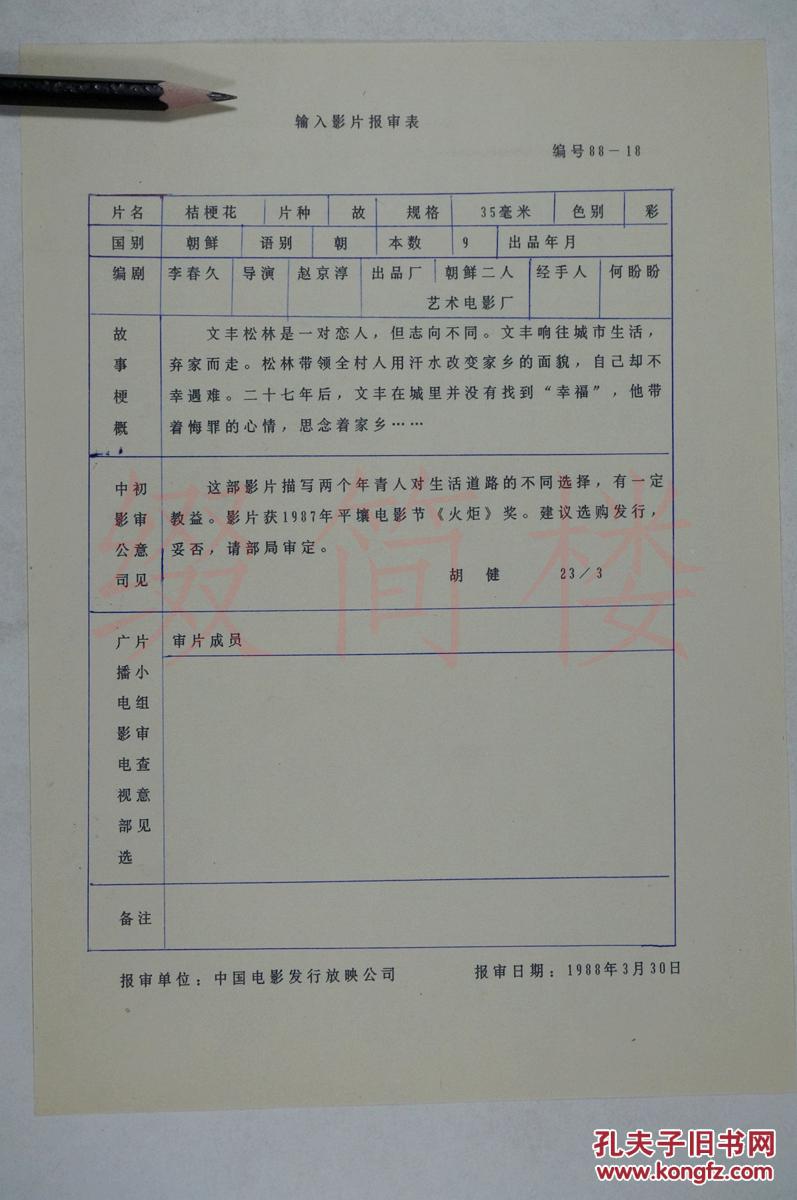 输入影片报审表
编号88-18
片名 桔梗花 片种 故 规格 35毫米 色别 彩
国别 朝鲜 语别 朝 本数 9 出品年月
编剧 李春久 导演 赵京淳 出品厂 朝鲜二人 经手人 何盼盼
艺术电影厂
故事梗概
文丰松林是一对恋人，但志向不同。文丰响往城市生活，
弃家而走。松林带领全村人用汗水改变家乡的面貌，自己却不
幸遇难。二十七年后，文丰在城里并没有找到“幸福”，他带
着悔罪的心情，思念着家乡……
中影公司初审意见
这部影片描写两个年青人对生活道路的不同选择，有一定
教益。影片获1987年平壤电影节《火炬》奖。建议选购发行，
妥否，请部局审定。
胡 健 23/3
广播电影电视部选片小组审查意见
审片成员
备注
报审单位：中国电影发行放映公司
报审日期：1988年3月30日
缀简楼
孔夫子旧书网
www.kongfz.com